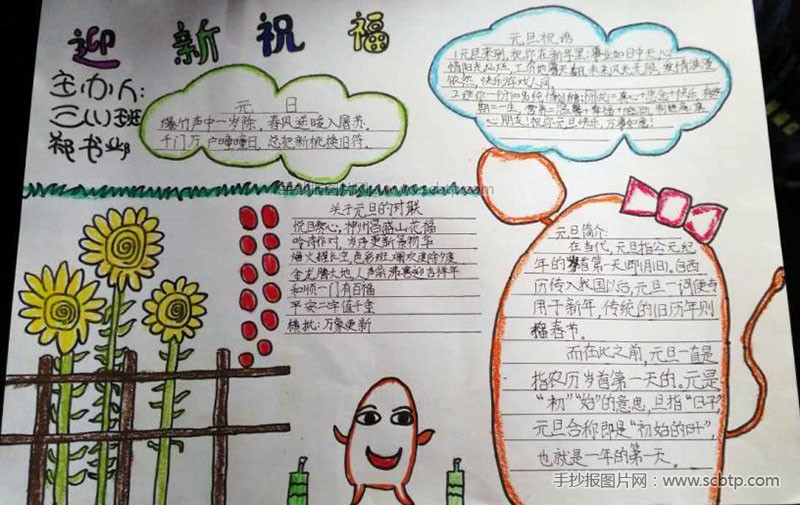 迎新祝福
主办人:
三(1)班
郑书
元日
爆竹声中一岁除,春风送暖入屠苏.
千门万户曈曈日,总把新桃换旧符.
元旦祝福
1元旦来到,祝你在新年里:事业如日中天,心
情阳光灿烂,工
依然,快乐游戏人间
心朋友:祝你元旦快乐,万事如意!
关于元旦的对联
悦目赏心,神州昌盛山花福
岁序更新景物华
金龙腾大地,人声高沸喜迎吉祥年
和顺一门有百福
平安二字值千金
横批:万象更新
元旦简介:
在当代,元旦指公元纪
年的岁首第一天即1月1日,自西
历传入我国以后,元旦一词便专
用于新年,传统的旧历年则
称春节.
而在此之前,元旦一直是
指农历岁首第一天的.元是
“初”“始”的意思,旦指“日子”,
元旦合称即是“初始的日子”,
也就是一年的第一天.
手抄报图片网:www.scbtp.com